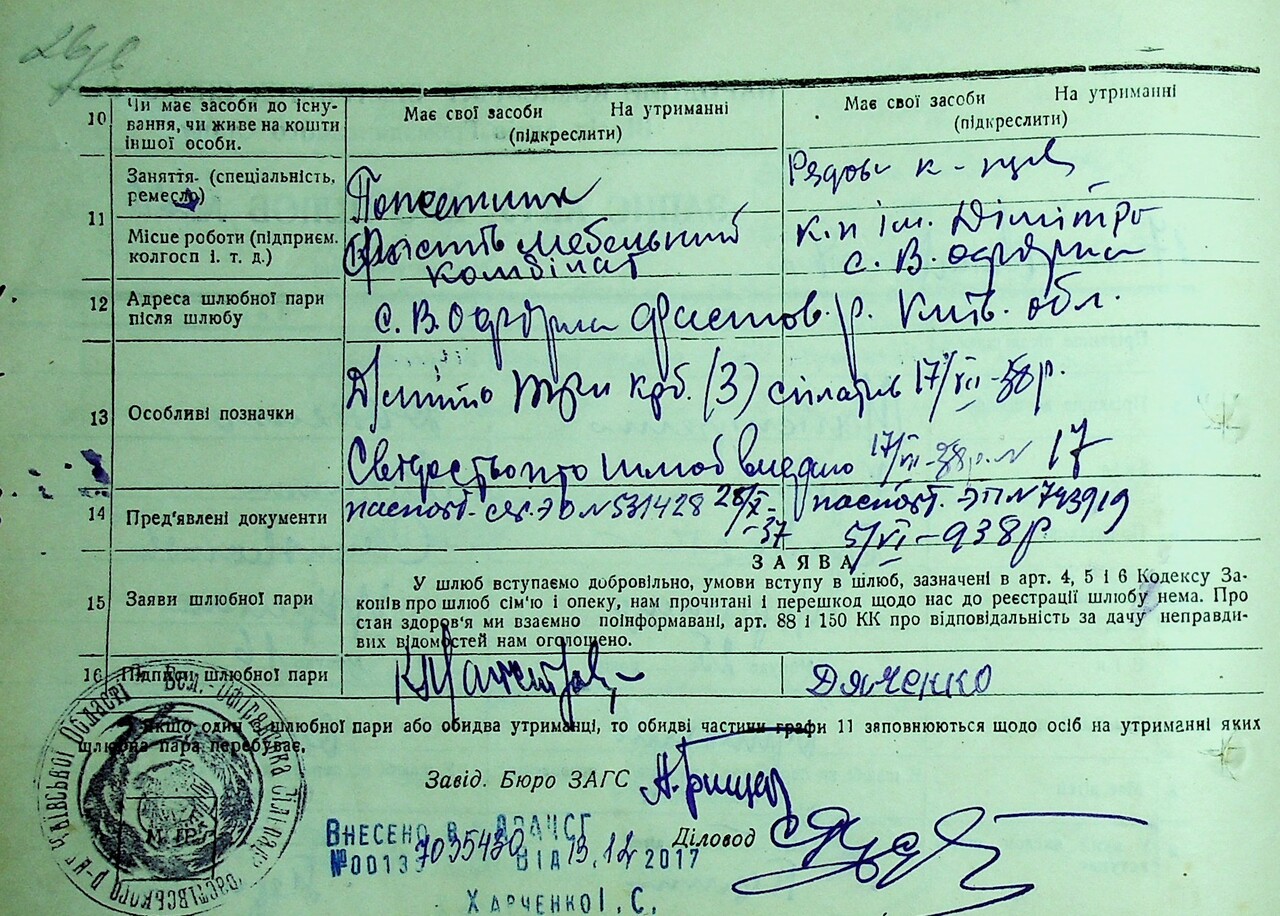 10 Чи має засоби до існу-
вання, чи живе на кошти
іншої особи.
Має свої засоби На утриманні
(підкреслити)
Має свої засоби На утриманні
(підкреслити)
11 Заняття- (спеціальність,
ремесло)
Місце роботи (підприєм.
колгосп і. т. д.)
мебельний
комбінат
к.п ім. Дімітро
с. В. Офірна
12 Адреса шлюбної пари
після шлюбу
с. В. Офірна Фастов. р. Київ. обл.
13 Особливі позначки
три крб. (3) 17/VII-38р.
Свідоство про шлюб видано 17/VII-38р. № 17
14 Пред'явлені документи
паспорт. № 531428 28/X-
-37
паспорт. ЭП № 743919
5/VI-938р.
ЗАЯВА
15 Заяви шлюбної пари
У шлюб вступаємо добровільно, умови вступу в шлюб, зазначені в арт. 4, 5 і 6 Кодексу За-
конів про шлюб сім'ю і опеку, нам прочитані і перешкод щодо нас до реєстрації шлюбу нема. Про
стан здоров'я ми взаємно поінформавані, арт. 88 і 150 КК про відповідальність за дачу неправди-
вих відомостей нам оголошено.
16 Підписи шлюбної пари
Дяченко
Якщо один шлюбної пари або обидва утриманці, то обидві частини графи 11 заповнюються щодо осіб на утриманні яких
шлюбна пара перебуває.
Завід. Бюро ЗАГС
Внесено в ДРАЦСГ
№00137035430 від 13.12 2017
Діловод
Харченко І. С.